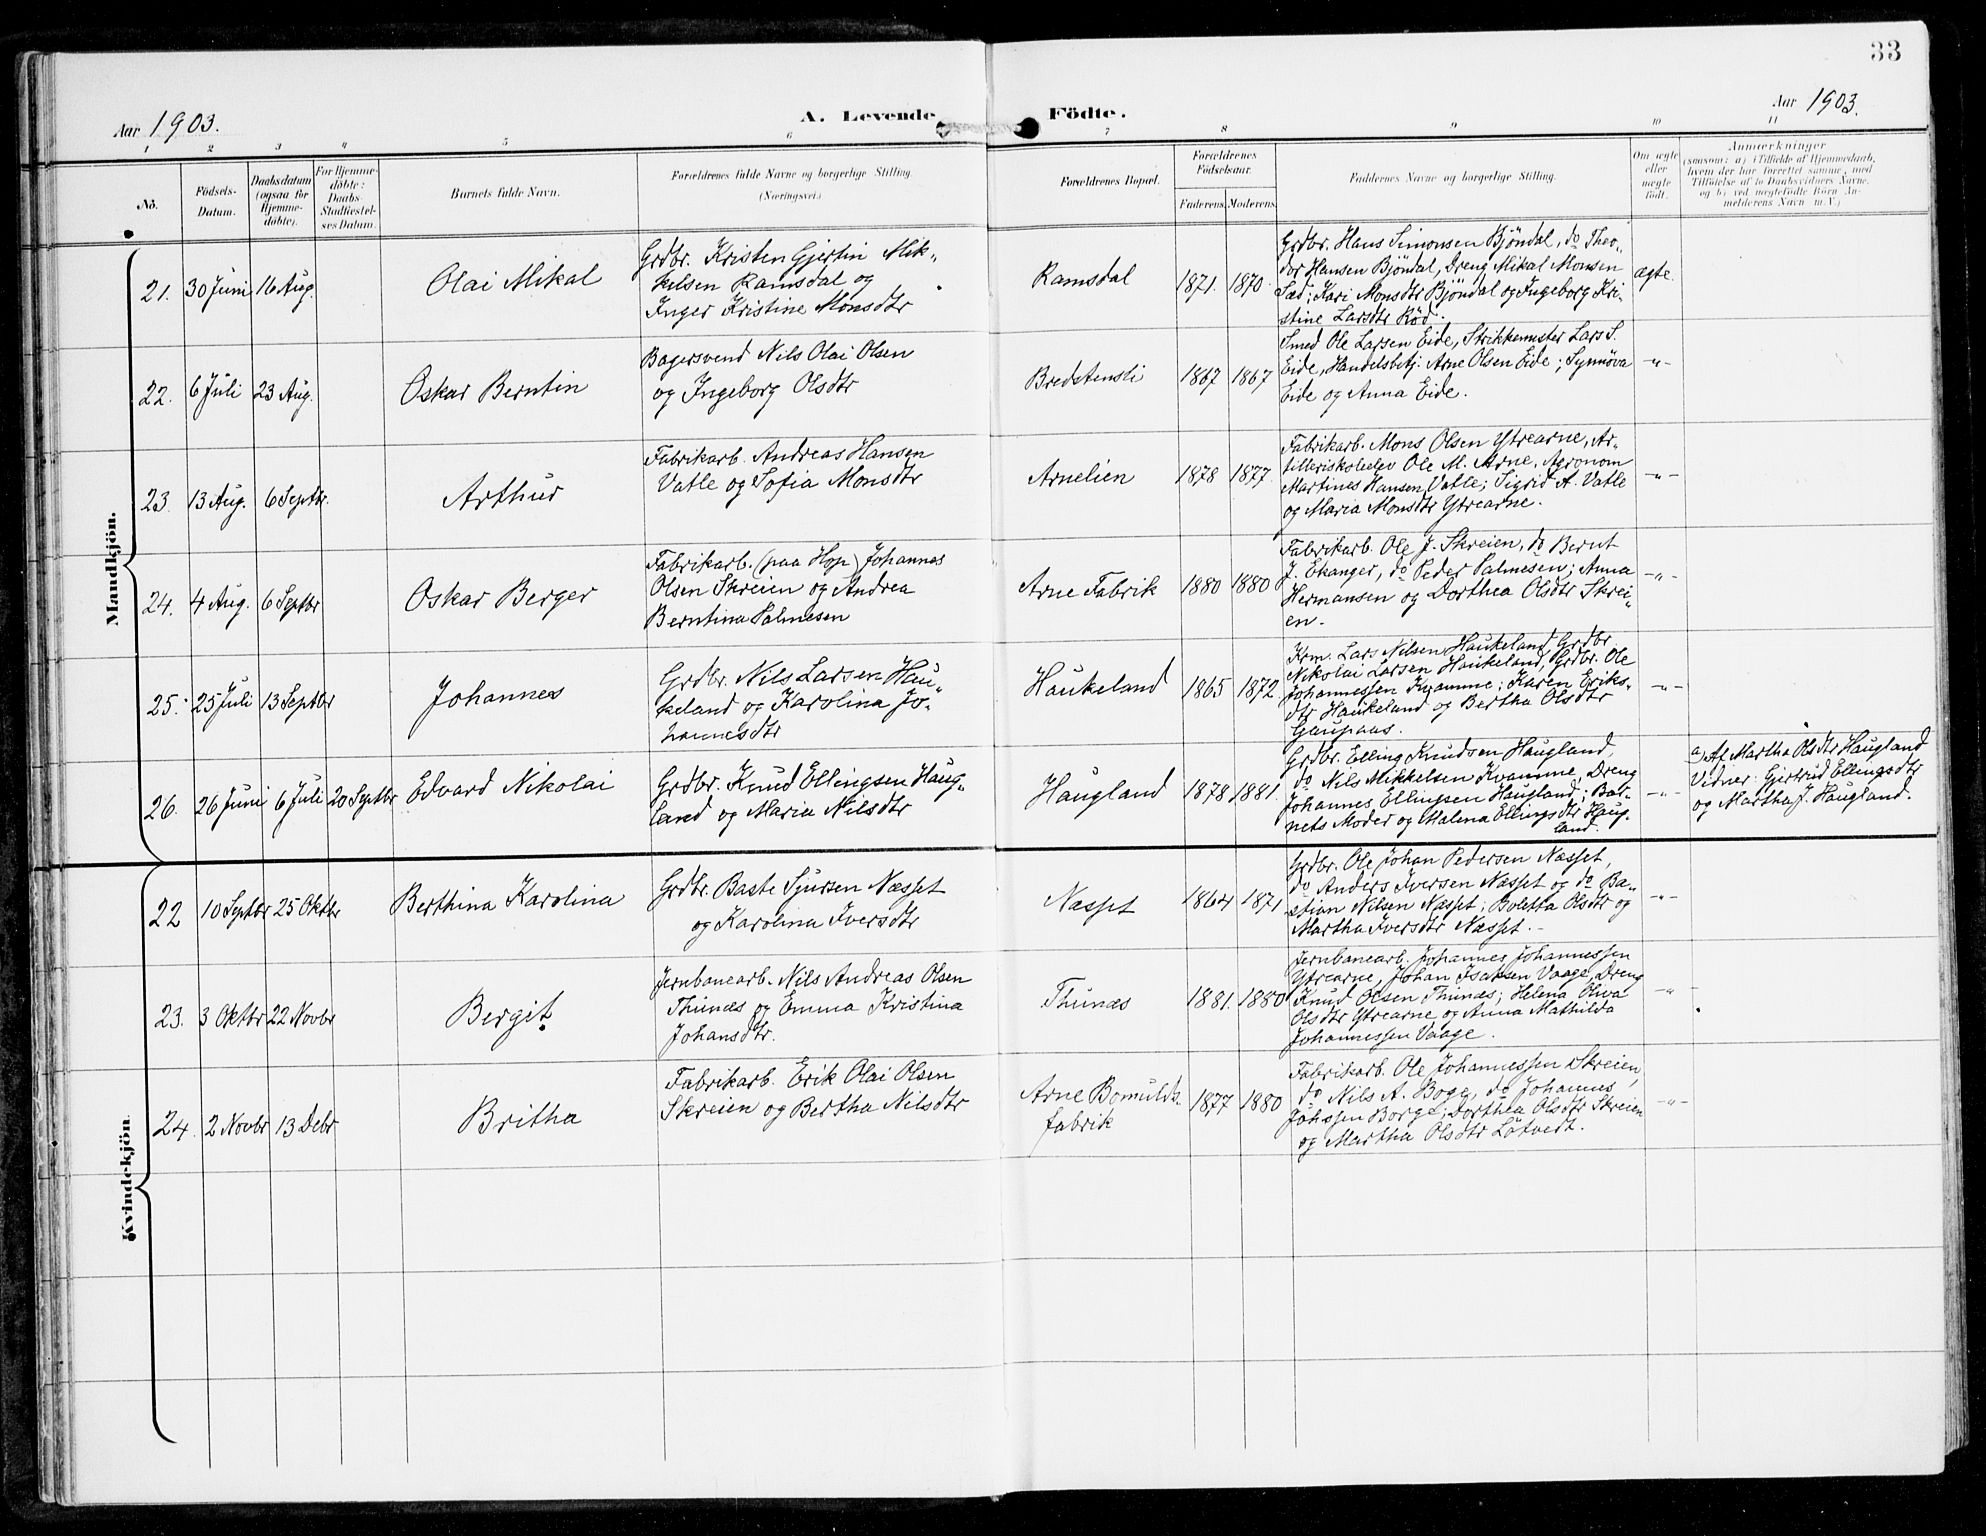 33
Aar 1903.
A. Levende Födte.
Aar 1903.
1 2 3 4 5 6 7 8 9 10 11
No.
Födsels-
Datum.
Daabsdatum
(ogsaa for
Hjemme-
döbte).
For Hjemme-
döbte:
Daabs-
Stadfæstel-
ses Datum.
Barnets fulde Navn.
Forældrenes fulde Navne og borgerlige Stilling.
(Næringsvei.)
Forældrenes Bopæl.
Forældrenes
Födselsaar.
Faderens. Moderens.
Faddernes Navne og borgerlige Stilling.
Om ægte
eller
uægte
födt.
Anmærkninger
(saasom: a) i Tilfælde af Hjemmedaab,
hvem der har forrettet samme, med
Tilföielse af to Daabsvidners Navne,
og b) ved uægtefödte Börn An-
melderens Navn m. V.)
Mandkjön.
21. 30 Juni 16 Aug.
Olai Mikal
Grdbr. Kristen Gjertin Mik-
kelsen Ramsdal og
Inger Kristine Monsdtr
Ramsdal
1871. 1870
Grdbr. Hans Simonsen Bjöndal, do Theo-
dor Hansen Bjöndal, Dreng Mikal Monsen
Sæd; Kari Monsdtr Bjöndal og Ingeborg Kri-
stine Larsdtr Röd.
ægte.
22. 6 Juli 23 Aug.
Oskar Berntin
Bagersvend Nils Olai Olsen
og Ingeborg Olsdtr
Bredstensli
1867 1867
Smed Ole Larsen Eide, Strikkemster Lars S.
Eide, Handelsbetj. Arne Olsen Eide; Synnöva
Eide og Anna Eide.
-"-
23. 13 Aug. 6 Septbr.
Arthur
Fabrikarb. Andreas Hansen
Vatle og Sofia Monsdtr
Arnelien
1878 1877
Fabrikarb. Mons Olsen Ytrearne, Ar-
tilleriskoleelev Ole M. Arne, Agronom
Martines Hansen Vatle; Sigrid A. Vatle
og Maria Monsdtr Ytrearne.
-"-
24. 4 Aug. 6 Septbr
Oskar Berger
Fabrikarb. (paa Hop) Johannes
Olsen Skreien og Andrea
Berntina Salmesen
Arne Fabrik
1880 1880
Fabrikarb. Ole J. Skreien, do Bernt
J. Ekanger, do Peder Salmesen; Anna
Hermansen og Dorthea Olsdtr Skrei-
en.
-"-
25. 25 Juli 13 Septbr
Johannes
Grdbr. Nils Larsen Hau-
keland og Karolina Jo-
hannesdtr
Haukeland
1865 1872
Krm. Lars Nilsen Haukeland, Grdbr
Nikolai Larsen Haukeland, Grdbr. Ole
Johannessen Kvamme; Karen Eriks-
dtr Haukeland og Bertha Olsdtr
Gaupaas.
-"-
26. 26 Juni 6 Juli 20 Septbr
Edvard Nikolai
Grdbr. Knud Ellingsen Haug-
land og Maria Nilsdtr
Haugland
1878 1881.
Grdbr. Elling Knudsen Haugland,
do Nils Mikkelsen Kvamme, Dreng
Johannes Ellingsen Haugland; Bar-
nets Moder og Malena Ellingsdtr Haug-
land.
-"-
a) Af Martha Olsdtr Haugland
Vidner: Gjertrud Ellingsdtr
og Martha J. Haugland.
Kvindekjön
22 10 Septbr 25 Oktbr
Berthina Karolina
Grdbr. Baste Sjursen Næsset
og Karolina Iversdtr
Næsset
1864 1871
Grdbr. Ole Johan Pedersen Næsset,
do Anders Iversen Næsset og do Ba-
stian Nilsen Næsset; Boletta Olsdtr og
Martha Iversdtr Næsset.-
-"-
23. 3 Oktbr 22 Novbr
Bergit
Jernbanearb. Nils Andreas Olsen
Thunæs og Emma Kristina
Johansdtr.
Thunæs
1881. 1880
Jernbanearb. Johannes Johannessen
Ytrearne, Johan Isaksen Vaage, Dreng
Knud Olsen Thunæs; Helena Oliva
Olsdtr Ytrearne og Anna Mathilda
Johannessen Vaage.
-"-
24. 2 Novbr 13 Debr
Britha
Fabrikarb. Erik Olai Olsen
Skreien og Bertha Nilsdtr
Arne Bomulds-
fabrik
1877 1880
Fabrikarb. Ole Johannessen Skreien,
do Nils A. Boge, do Johannes
Johssen Borge; Dorthea Olsdtr Skreien
og Martha Olsdtr Lötvedt.
-"-